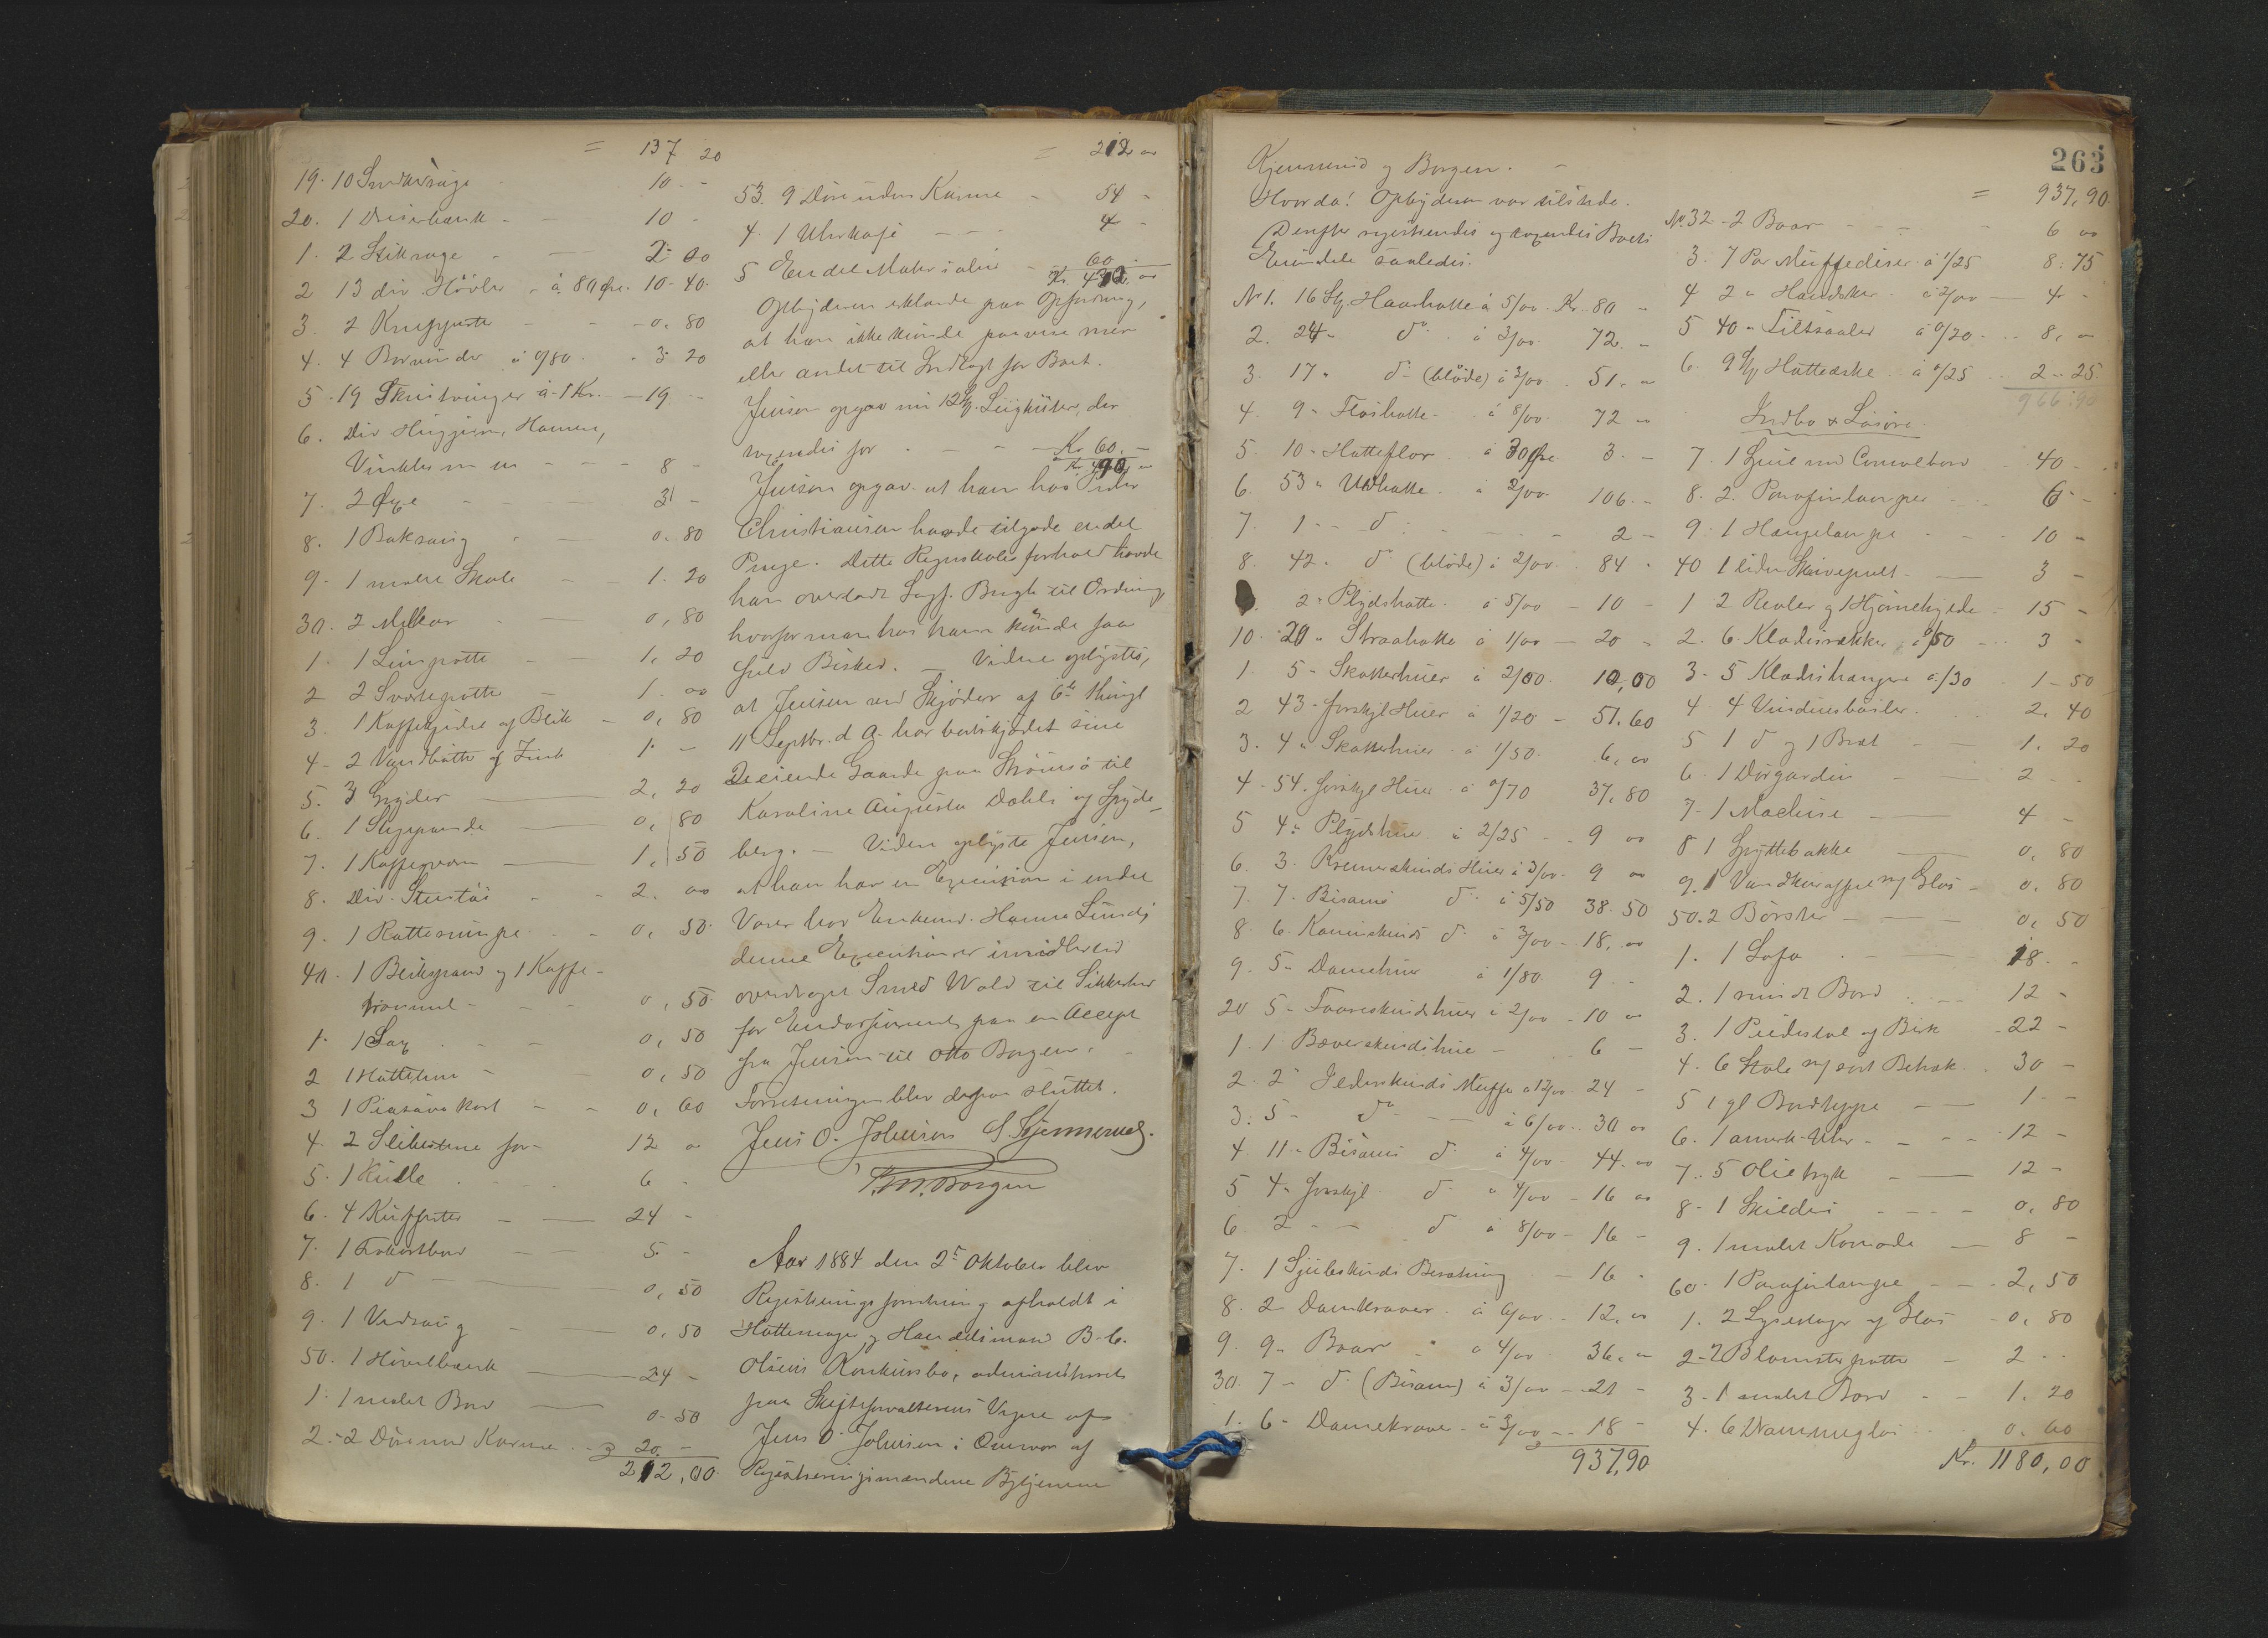 = 137 20
19. 10 Smaasage 10. -
20. 1 Dreierbænk - 10 -
1. 2 Stiksage - 2. 00
2 13 div. Høvler - à 80 Øre. 10. 40.
3. 2 - 0. 80
4. 4 Borvinder à 0/80 3. 20
5. 19 Skrutvinger à 1 Kr. - 19 -
6. Div Huggjern, Hamer,
Vinkler m m - - 8 -
7. 2 Øxe - 3 -
8. 1 Baksaug - 0. 80
9. 1 malet Skab - 1. 20
30. 2 - 0, 80
1. 1 Limpotte - 1. 20
2 2 Svartepotter - 1. 00
3. 1 Kaffekjedel af Blik - 0, 80
4. 2 Vandbøtter af Zink 1. -
5. 3 Gryder - 2, 20
6. 1 Stegepande - 0, 80
7. 1 Kaffekværn - 1, 50
8. Div. Stentøi - 2. 00
9. 1 - 0, 50
40. 1 Blikspand og 1 Kaffe-
trommel - 0, 50
1. 1 Sax - 0, 50
2 1 - 0, 50
3 1 Piasava Kost - 0, 60
4. 2 Slibestene for - 12 00
5. 1 Kulle - 6 -
6. 4 Kufferter - 24 -
7. 1 - 5. -
8. 1 do - 0, 50
9. 1 Vedsaug - 0. 50
50. 1 Høvelbænk - 24 -
1. 1 malet Bord - 0. 50
2. 2 Døre med Karme - 20. -
212,00.
= 212 00
53. 9 Døre uden Karme - 54 -
4. 1 Uhrkasse - 4 -
5 En del Materialier - 60 -
Opbyderen erklærede paa Opfordring,
at han ikke kunde paavise mer
eller andet til Indtægt for Boet.
Jensen opgav nu 12 St. Ligkister, der
toges for - Kr 60. -
Jensen opgav at han hos Peder
Christiansen havde tilgode en del
Penge. Dette Regnskabsforhold havde
han overladt Sagf. Bugge til Ordning,
hvorfor man hos ham kunde faa
fuld Besked. — Videre oplystes,
at Jensen ved Skjøder af 6te thingl
11 Septbr. d A. har bortskjødet sine
2 eiende Gaarde paa Strømsø til
Karoline Augusta Dahls af Spyde-
berg. — Videre oplyste Jensen,
at han har en Execution i endel
Varer hos Enkemd. Hanna Lund;
denne Execution er imidlertid
overdraget Smed Wold til Sikkerhed
for Endossement paa en Accept
fra Jensen til Otto Borgen.
Forretningen blev derpaa sluttet.
Jens O. Johnsen S. Kjennerud.
T. M. Borgen
Aar 1884 den 2den Oktober blev
Registreringsforretning afholdt i
Hattemager og Handelsmand B. C.
Olsens Konkursbo, administreret
paa Skifteforvalterens Vegne af
Jens O. Johnsen i Overvær af
Registreringsmændene
263
Kjennerud og Borgen. -
Hvorda! Opbyderen var tilstede.
Derefter registreredes og toges Boets
Eiendele saaledes.
No 1. 16 St. Haarhatte à 5/00. Kr. 80 -
2. 24 " do à 3/00. 72. -
3. 17 " do (bløde) à 3/00. 51. "
4. 9 " Floshatte à 8/00. 72 "
5. 10 " Hatteflor à 30 Øre 3. -
6. 53 " Uldhatte à 2/00. 106. -
7. 1 " do - 2 -
8. 42 " do (bløde) à 2/00. 84 "
2 " Plydshatte à 5/00 - 10 -
10. 20 " Straahatte à 1/00 - 20 "
1. 5 " Skotterhuer à 2/00. 10,00
2 43 " forskjl Huer à 1/20 - 51. 60
3. 4 " Skotterhuer à 1/50. 6, 00
4 - 54. forskjl Huer à 0/70 37. 80
5 4 " Plydshue à 2/25 - 9 00
6. 3. Kremerskinds Huer à 3/00. 9 00
7. 7. Bisams do à 5/50 38. 50
8. 6. Kaninskinds do à 3/00 - 18. 00
9. 5 " Damehuer à 1/80 9. -
20 5 " Faareskindshuer à 2/00 - 10 00
1. 1 Bæverskindshue - 6 -
2. 2 " Ilderskinds Muffe à 12/00. 24 -
3. 5 " do - à 6/00. 30 00
4. 11 " Bisams do à 4/00 44. 00
5 4 " forskjl. do à 4/00 - 16 00
6. 2 " do à 8/00 - 16 -
7. 1 Sjubskinds Besætning - 16 -
8. 2 Damekraver à 6/00 - 12. 00
9. 9 " Boaer à 4/00 36. "
30. 7 " do (Bisam) à 3/00 - 21 -
1. 6 " Damekraver à 3/00 - 18 -
937,90
= 937,90
No 32 - 2 Boaer - 6 00
3. 7 Par Muffediser à 1/25 8. 75
4 2 " Handsker à 2/00 - 4 -
5 40 " Filtsaaler à 0/20 - 8. "
6. 9 St. Hatteæske à 0/25 2. 25.
966.90
Indbo & Løsøre.
7. 1 Speil med Consolbord 40 -
8. 2. Parafinlamper - 6 -
9. 1 Hængelampe - 10 -
40 1 liden Skrivepult - 3 -
1 2 Reoler og 1 Hjørnehylde - 15 -
2. 6. Klædesrækker à 0/50 - 3 -
3. 5 Klædeshænger à /30 - 1. 50
4 4 Vinduesbøiler. 2. 40
5 1 do og 1 Bræt - 1. 20
6. 1 Dørgardin - 2 -
7. 1 Machine - 4 -
8 1 Spyttebakke - 0, 80
9. 1 Vandkaraffel m/ Glas - 0. 80
50. 2 Børster - 0, 50
1. 1 Sofa - 18. -
2. 1 rundt Bord - 12 -
3. 1 Piedestal af Birk - 22 -
4. 6 Stole m/ sort Betræk. 30 -
5 1 gl Bordteppe - 1. -
6. 1 amerk. Uhr - 12 -
7. 5 Olietryk - 12 -
8. 1 Skilderi - 0, 80
9. 1 malet Komode - 8 -
60. 1 Parafinlampe - 2, 50
1. 2 Lysestager af Glas - 0, 80
2. 2 Blomsterpotter - 2 -
3. 1 malet Bord - 1. 20
4. 6 Dramneglas 0. 60
Kr. 1180,00